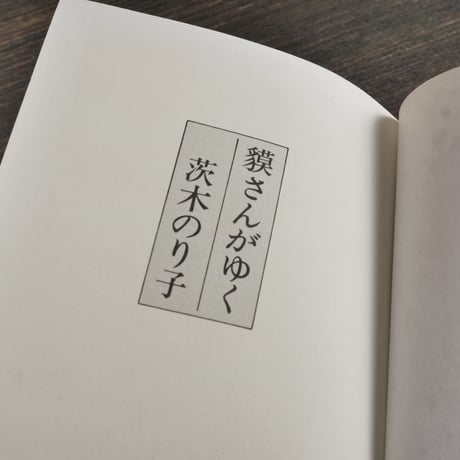 貘さんがゆく
茨木のり子